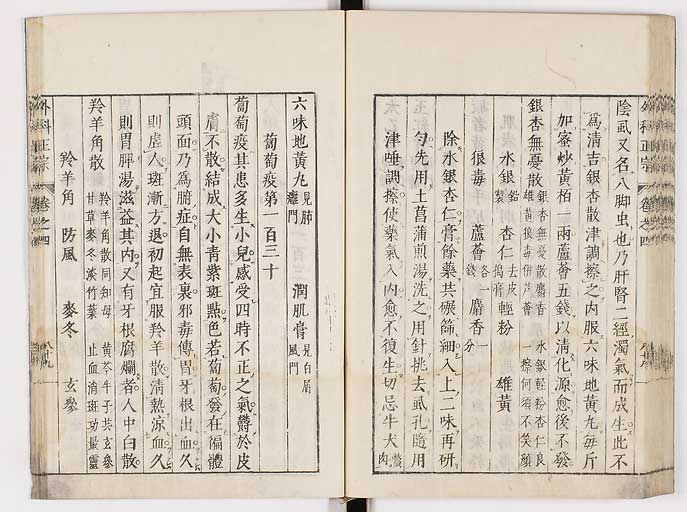 陰虱又名八脚虫也乃肝腎二經濁氣而成生此不
爲清吉銀杏散津調擦之內服六味地黃丸每斤
加蜜炒黃栢一兩蘆薈五錢以清化源愈後不發
銀杏無憂散 銀杏無憂散麝香 水銀輕粉杏仁良
雄黃狼毒併芦薈 一擦何須不笑顔
水銀 鉛製 杏仁 去皮搗膏 輕粉 雄黃
狼毒 蘆薈 各一錢 麝香 一分
除水銀杏仁膏餘藥共碾篩細入上二味再研
勻先用土菖蒲煎湯洗之用針挑去虱孔隨用
津唾調擦使藥氣入內愈不復生切忌牛犬鱉肉
六味地黃丸 見肺癰門 潤肌膏 見白屑風門
葡萄疫第一百三十
葡萄疫其患多生小兒感受四時不正之氣鬱於皮
膚不散結成大小青紫斑點色若葡萄發在徧體
頭面乃爲腑症自無表裏邪毒傳胃牙根出血久
則虛人斑漸方退初起宜服羚羊散清熱凉血久
則胃脾湯滋益其內又有牙根腐爛者人中白散
羚羊角散 羚羊角散同知母 黃芩牛子共玄參
甘草麥冬淡竹葉 止血消斑功最靈
羚羊角 防風 麥冬 玄參
外科正宗 卷之四
外科正宗 卷之四